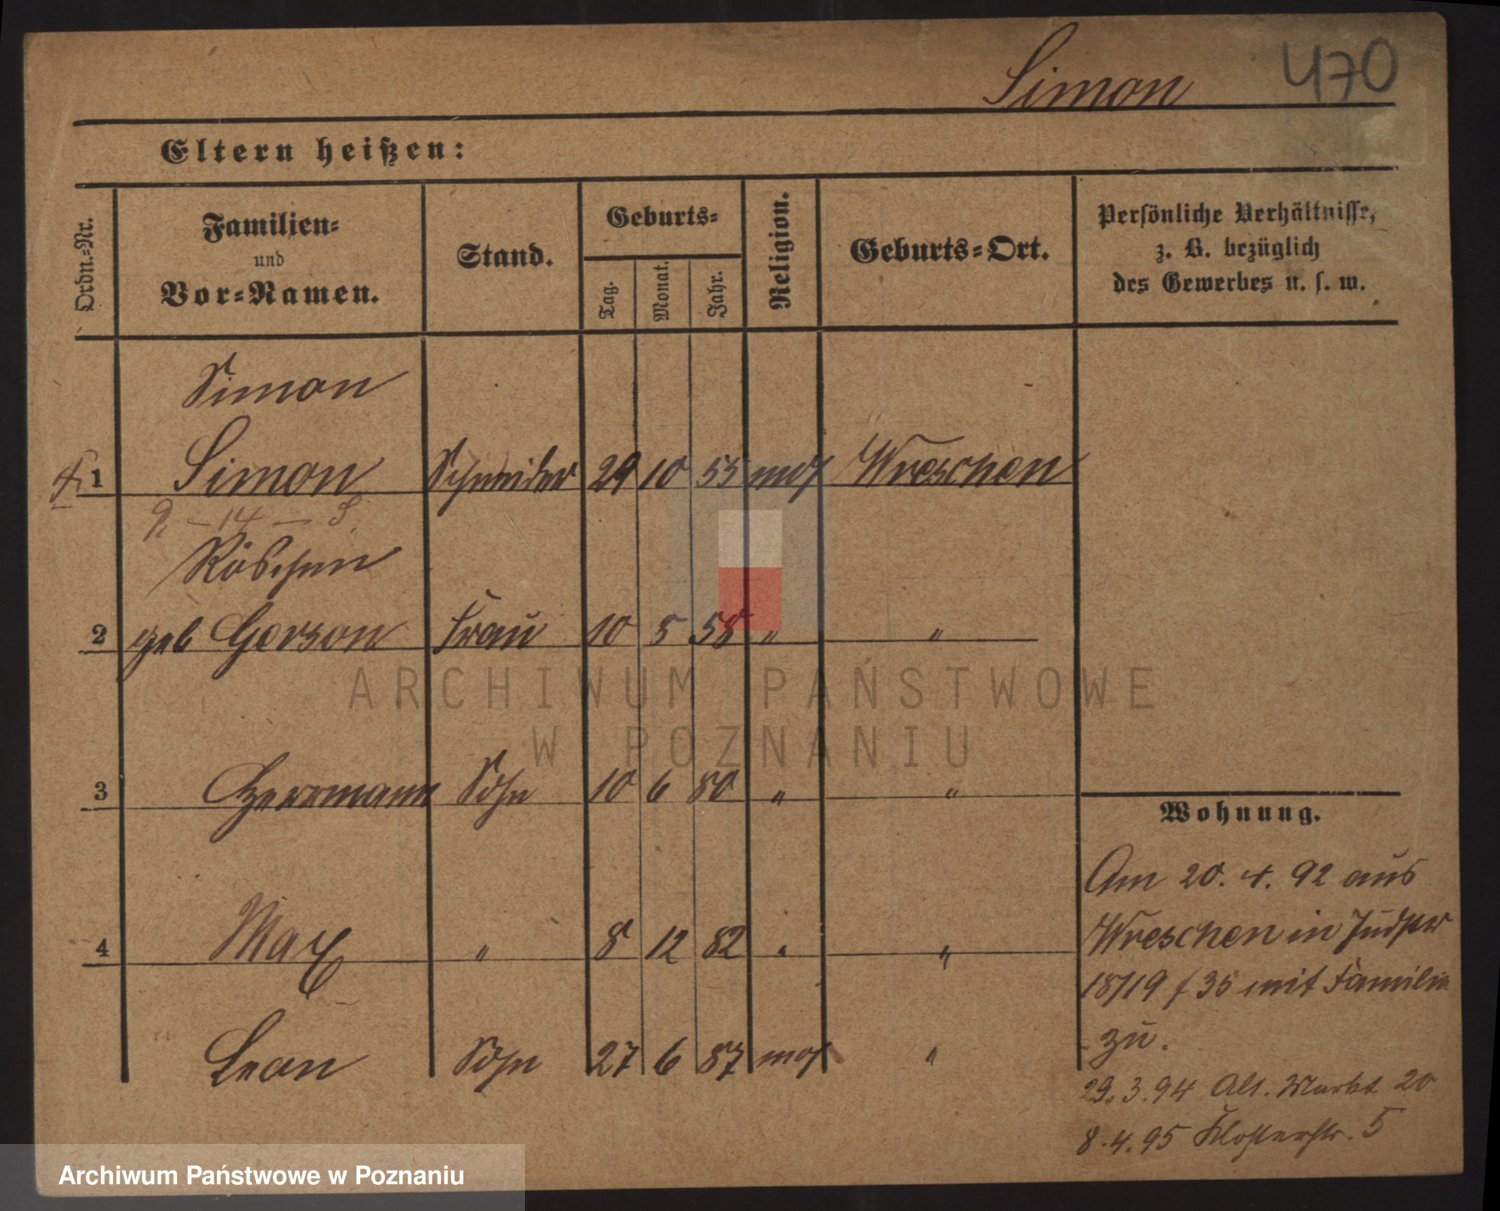 Simon 470
Eltern heißen:
Ordn.-Nr.
Familien-
und
Vor-Namen.
Stand.
Geburts-
Tag.
Monat.
Jahr.
Religion.
Geburts-Ort.
Persönliche Verhältnisse,
z. B. bezüglich
des Gewerbes u. s. w.
Simon
1 Simon Schneider 29 10 55 mos Wreschen
Röschen
2 geb Gerson Frau 10 5 58 " "
3 Herrmann Sohn 10 6 80 " "
Wohnung.
4 Max " 8 12 82 " "
Leon Sohn 27 6 87 mos "
Am 20. 4. 92 aus
Wreschen in Judstr
18/19 f 35 mit Familie
zu.
29.3.94 Alt. Markt 20
8.4.95 Klosterstr. 5
ARCHIWUM PAŃSTWOWE
W POZNANIU
Archiwum Państwowe w Poznaniu